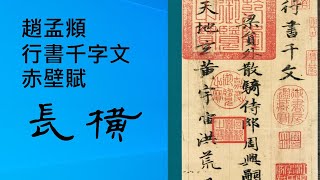 趙孟頫
行書千字文
赤壁賦
長橫
行書千文
梁員外散騎侍郎周興嗣
天地玄黃宇宙洪荒